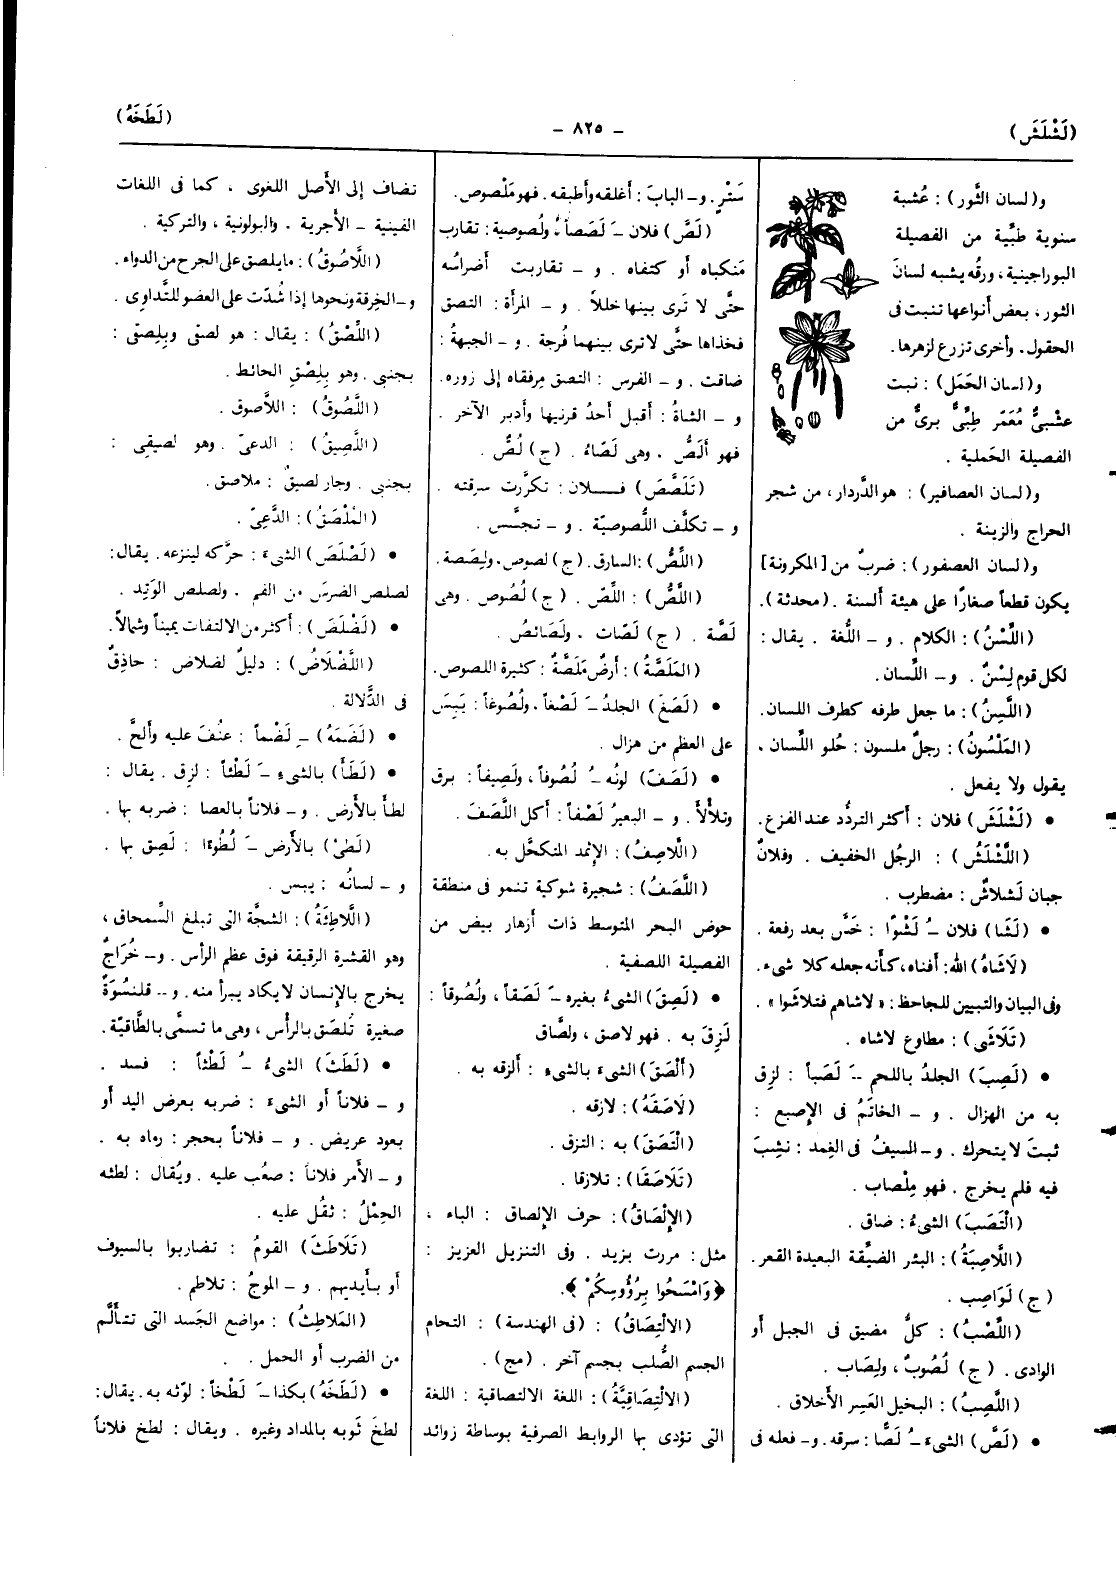 (لَشْلَشَ)
– ٨٢٥ –
(لَطَخَهُ)
و(لسان الثَّور) : عُشبة
سنوية طبِّية من الفصيلة
البوراجينية ، ورقُه يشبه لسانَ
الثور ، بعض أنواعها تنبت فى
الحقول . وأخرى تزرع لزهرها .
و(لسان الحَمَل) : نبت
عشبىٌّ مُعَمّر طِبِّىٌّ برىٌّ من
الفصيلة الحَملية .
و(لسان العصافير) : هو الدَّردار ، من شجر
الحراج والزينة .
و(لسان العصفور) : ضربٌ من [المكرونة]
يكون قطعاً صغارًا على هيئة ألسنة . (محدثة) .
(اللِّسْنُ) : الكلام . و – اللُّغة . يقال :
لكل قوم لِسْنٌ . و – اللِّسان .
(اللَّسِنُ) : ما جعل طرفه كطرف اللسان .
(المَلْسُونُ) : رجلٌ ملسون : حُلو اللِّسان ،
يقول ولا يفعل .
• (لَشْلَشَ) فلان : أكثر التردُّد عند الفزع .
(اللَّشْلَشُ) : الرجُل الخفيف . وفلانٌ
جبان لَشلاش : مضطرب .
• (لَشَا) فلان –ُ لَشْوًا : خَسَّ بعد رفعة .
(لَاشَاهُ) الله : أفناه ، كأنه جعله كلا شىء .
وفى البيان والتبيين للجاحظ : « لاشاهم فتلاشوا » .
(تَلَاشَى) : مطاوع لاشاه .
• (لَصِبَ) الجلدُ باللحم –َ لَصَباً : لزِق
به من الهزال . و – الخاتَمُ فى الإصبع :
ثبتَ لا يتحرك . و – السيفُ فى الغِمد : نشِبَ
فيه فلم يخرج . فهو مِلْصاب .
(الْتَصَبَ) الشىءُ : ضاق .
(اللَّاصِبَةُ) : البئر الضيِّقة البعيدة القعر .
(ج) لَوَاصِب .
(اللِّصْبُ) : كلُّ مضيق فى الجبل أو
الوادى . (ج) لُصُوبٌ ، ولِصَاب .
(اللَّصِبُ) : البخيل العَسِر الأخلاق .
• (لَصَّ) الشىءَ –ُ لَصًّا : سرقه . و – فعله فى
سَتْرٍ . و – البابَ : أغلقه وأطبقه . فهو مَلْصوص .
(لَصَّ) فلان –َ لَصَصاً ، ولُصوصية : تقارب
مَنكباه أو كتفاه . و – تقاربت أضراسُه
حتَّى لا تَرى بينها خللاً . و – المرأة : التصق
فخذاها حتَّى لا ترى بينهما فُرجة . و – الجبهةُ :
ضاقت . و – الفرس : التصق مِرفقاه إلى زوره .
و – الشاةُ : أقبل أحدُ قرنيها وأدبر الآخر .
فهو أَلَصُّ ، وهى لَصَّاءُ . (ج) لُصٌّ .
(تَلَصَّصَ) فــلان : تكرَّرت سرقته .
و – تكلَّف اللُّصوصيّة . و – تجسَّس .
(اللِّصُّ) : السارق . (ج) لصوص ، ولِصَصة .
(اللَّصُّ) : اللِّصّ . (ج) لُصُوص . وهى
لَصَّة . (ج) لَصَّات ، ولَصَائصُ .
(المَلَصَّةُ) : أرضٌ مَلَصَّةٌ : كثيرة اللصوص .
• (لَصَغَ) الجلدُ –َ لَصْغاً ، ولُصُوغاً : يَبِسَ
على العظم من هزال .
• (لَصَفَ) لونُه –ُ لُصُوفاً ، ولَصِيفاً : برق
وتلألأ . و – البعيرُ لَصْفاً : أكل اللَّصَفَ .
(اللَّاصِفُ) : الإثمد المتكحَّل به .
(اللَّصَفُ) : شجيرة شوكية تنمو فى منطقة
حوض البحر المتوسط ذات أزهار بيض من
الفصيلة اللصفية .
• (لَصِقَ) الشىءُ بغيره –َ لَصَقاً ، ولُصُوقاً :
لَزِقَ به . فهو لاصق ، ولصَّاق
(أَلْصَقَ) الشىءَ بالشىءِ : ألزقه به .
(لَاصَقَهُ) : لازقه .
(الْتَصَقَ) به : التزق .
(تَلَاصَقَا) : تلازقا .
(الإِلْصَاقُ) : حرف الإلصاق : الباء ،
مثل : مررت بزيد . وفى التنزيل العزيز :
﴿وَامْسَحُوا بِرُؤُوسِكُمْ﴾ .
(الالْتِصَاقُ) : (فى الهندسة) : التحام
الجسم الصُّلب بجسم آخر . (مج) .
(الالْتِصَاقِيَّةُ) : اللغة الالتصاقية : اللغة
التى تؤدى بها الروابط الصرفية بوساطة زوائد
تضاف إلى الأصل اللغوى ، كما فى اللغات
الفينية – الأجرية . والبولونية ، والتركية .
(اللَّاصُوقُ) : ما يلصق على الجرح من الدواء .
و – الخِرقة ونحوها إذا شُدّت على العضو للتَّداوِى .
(اللِّصْقُ) : يقال : هو لصقى وبِلِصقى :
بجنبى . وهو بِلِصْقِ الحائط .
(اللَّصُوقُ) : اللاَّصوق .
(اللَّصِيقُ) : الدعىّ . وهو لصيقى :
بجنبى . وجار لصيقٌ : ملاصق .
(المُلْصَقُ) : الدَّعِىّ .
• (لَصْلَصَ) الشىءَ : حرَّكه لينزعه . يقال :
لصلص الضرسَ من الفم . ولصلص الوَتِد .
• (لَضْلَضَ) : أكثر من الالتفات يميناً وشمالاً .
(اللَّضْلَاضُ) : دليلٌ لضلاض : حاذِقٌ
فى الدَّلالة .
• (لَضَمَهُ) –ِ لَضْماً : عنُفَ عليه وألحَّ .
• (لَطَأَ) بالشىءِ –َ لَطْئاً : لزِق . يقال :
لطأ بالأرض . و – فلاناً بالعصا : ضربه بها .
(لَطِئَ) بالأرض –َ لُطُوءًا : لَصِق بها .
و – لسانُه : يبس .
(اللَّاطِئَةُ) : الشجَّة التى تبلغ السِّمحاق ،
وهو القشرة الرقيقة فوق عظم الرأس . و – خُرَاجٌ
يخرج بالإنسان لا يكاد يبرأ منه . و – قلنسُوَةٌ
صغيرة تُلصَق بالرأس ، وهى ما تسمَّى بالطَّاقيّة .
• (لَطَثَ) الشىءُ –ُ لَطْثاً : فسد .
و – فلاناً أو الشىءَ : ضربه بعرض اليد أو
بعود عريض . و – فلاناً بحجر : رماه به .
و – الأمر فلاناً : صعُب عليه . ويُقال : لطثه
الحِمْلُ : ثقُل عليه .
(تَلَاطَثَ) القومُ : تضاربوا بالسيوف
أو بأيديهم . و – الموجُ : تلاطم .
(المَلَاطِثُ) : مواضع الجَسد التى تتألَّم
من الضرب أو الحمل .
• (لَطَخَهُ) بكذا –َ لَطْخاً : لوَّثه به . يقال :
لطخَ ثَوبه بالمداد وغيره . ويقال : لطخ فلاناً